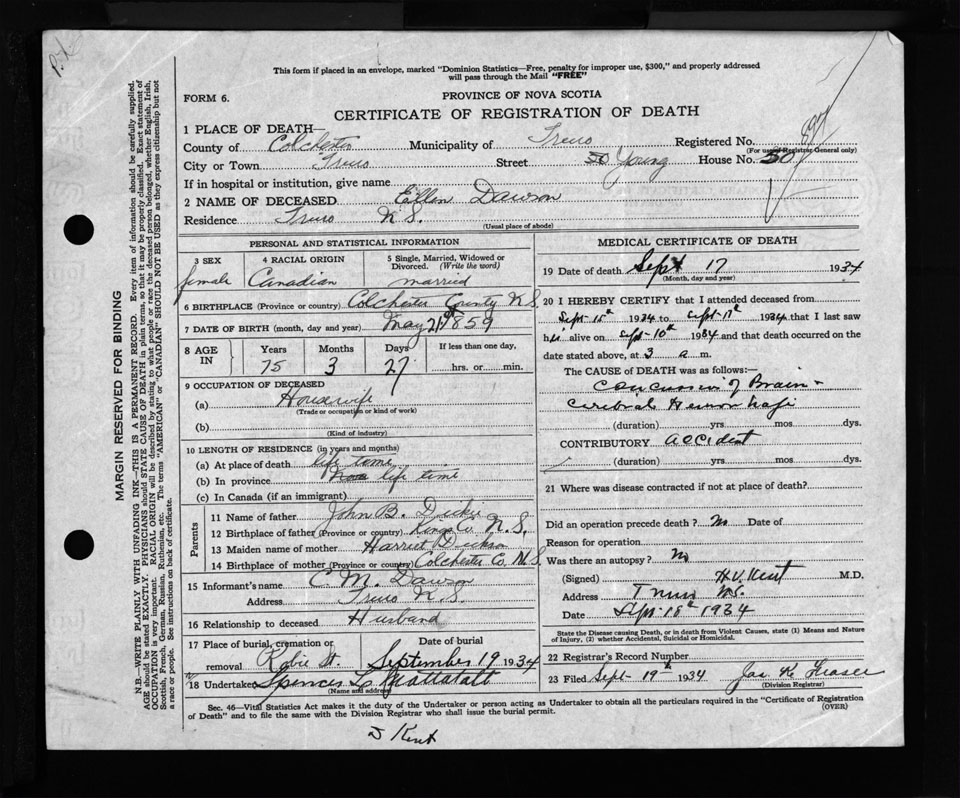 This form if placed in an envelope, marked "Dominion Statistics—Free, penalty for improper use, $300," and properly addressed
will pass through the Mail "FREE"
FORM 6.
PROVINCE OF NOVA SCOTIA
CERTIFICATE OF REGISTRATION OF DEATH
1 PLACE OF DEATH—
County of Colchester Municipality of Truro Registered No.
(For use of Registrar General only)
City or Town Truro Street 50 Young House No. 50
If in hospital or institution, give name
2 NAME OF DECEASED Ellen Dawson
Residence Truro N.S.
(Usual place of abode)
PERSONAL AND STATISTICAL INFORMATION
3 SEX 4 RACIAL ORIGIN 5 Single, Married, Widowed or Divorced. (Write the word)
female Canadian married
6 BIRTHPLACE (Province or country) Colchester County N.S.
7 DATE OF BIRTH (month, day and year) May 21st 1859
8 AGE IN Years Months Days If less than one day,
75 3 27 hrs. or min.
9 OCCUPATION OF DECEASED
(a) Housewife
(Trade or occupation or kind of work)
(b)
(Kind of industry)
10 LENGTH OF RESIDENCE (in years and months)
(a) At place of death life time
(b) In province life time
(c) In Canada (if an immigrant)
Parents
11 Name of father John B. Dickie
12 Birthplace of father (Province or country) Kings Co. N.S.
13 Maiden name of mother Harriet Dickson
14 Birthplace of mother (Province or country) Colchester Co. N.S.
15 Informant's name C. M. Dawson
Address Truro N.S.
16 Relationship to deceased Husband
17 Place of burial, cremation or removal Date of burial
Robie St. September 19 1934
18 Undertaker Spencer L. Mattatall
(Name and address)
MEDICAL CERTIFICATE OF DEATH
19 Date of death Sept 17 1934
(Month, day and year)
20 I HEREBY CERTIFY that I attended deceased from
Sept 15th 1934 to Sept 17th 1934 that I last saw
her alive on Sept 10th 1934 and that death occurred on the
date stated above, at 3 a m.
The CAUSE of DEATH was as follows:—
Concussion of Brain +
Cerebral Hemorrhage
(duration) yrs. mos. dys.
CONTRIBUTORY accident
(duration) yrs. mos. dys.
21 Where was disease contracted if not at place of death?
Did an operation precede death? No Date of
Reason for operation
Was there an autopsy? No
(Signed) H.V. Kent M.D.
Address Truro N.S.
Date Sept 18th 1934
State the Disease causing Death, or in death from Violent Causes, state (1) Means and Nature
of Injury, (2) whether Accidental, Suicidal or Homicidal.
22 Registrar's Record Number
23 Filed Sept 19th 1934 Jas. K. Fraser
(Division Registrar)
Sec. 46—Vital Statistics Act makes it the duty of the Undertaker or person acting as Undertaker to obtain all the particulars required in the "Certificate of Registration
of Death" and to file the same with the Division Registrar who shall issue the burial permit. (OVER)
Kent
MARGIN RESERVED FOR BINDING
N.B.—WRITE PLAINLY WITH UNFADING INK—THIS IS A PERMANENT RECORD. Every item of information should be carefully supplied.
AGE should be stated EXACTLY. PHYSICIANS should STATE CAUSE OF DEATH in plain terms, so that it may be properly classified. Exact statement of
OCCUPATION is very important. RACIAL ORIGIN will be described by stating to what people or race the deceased person belonged, whether English, Irish,
Scottish, French, German, Russian, Ruthenian, etc. The terms "AMERICAN" or "CANADIAN" SHOULD NOT BE USED as they express citizenship but not
a race or people. See instructions on back of certificate.